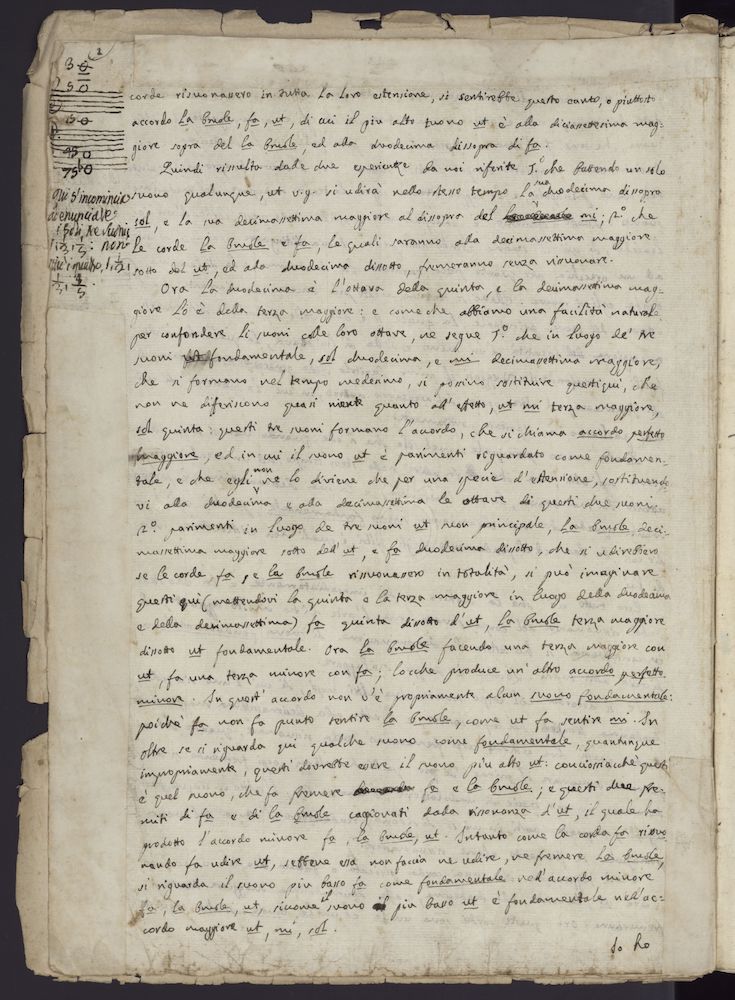 2
3
5
15
45
75
Qui s'incomincia
corde risuonassero in tutta la loro estensione, si sentirebbe questo canto, o piuttosto
accordo la bmole, fa, ut, di cui il più alto tuono ut è alla diciassettesima mag-
giore sopra del la bmole, ed alla duodecima dissopra di fa.
Quindi risulta dalle due esperienze da noi riferite 1.° che battendo un solo
suono qualunque, ut v.g. si udirà nello stesso tempo la sua duodecima dissopra
sol, e la sua decimassettima maggiore al dissopra del mi; 2.° che
le corde la bmole e fa, le quali saranno alla decimassettima maggiore
sotto del ut, ed alla duodecima dissotto, fremeranno senza risuonare.
Ora la duodecima è l'ottava della quinta, e la decimassettima mag-
giore lo è della terza maggiore: e come che abbiamo una facilità naturale
per confondere li suoni colle loro ottave, ne segue 1.° che in luogo de' tre
suoni ut fondamentale, sol duodecima, e mi decimassettima maggiore,
che si formano nel tempo medesimo, si possino sostituire questi qui, che
non ne diferiscono quasi niente quanto all'effetto, ut mi terza maggiore,
sol quinta: questi tre suoni formano l'accordo, che si chiama accordo perfetto
maggiore, ed in cui il suono ut è parimenti riguardato come fondamen-
tale, e che egli non ne lo diviene che per una specie d'estensione, sostituendo
vi alla duodecima e alla decimassettima le ottave di questi due suoni.
2.° parimenti in luogo de tre suoni ut suon principale, la bmole deci-
massettima maggiore sotto dell'ut, e fa duodecima dissotto, che si udirebbero
se le corde, fa, e la bmole risuonassero in totalità, si può imaginare
questi qui (mettendovi la quinta e la terza maggiore in luogo della duodecima
e della decimassettima) fa quinta dissotto d'ut, la bmole terza maggiore
dissotto ut fondamentale. Ora la bmole facendo una terza maggiore con
ut, fa una terza minore con fa; locche produce un'altro accordo perfetto
minore. In quest'accordo non v'è propriamente alcun suono fondamentale:
poiche fa non fa punto sentire la bmole, come ut fa sentire mi. In
oltre se si riguarda qui qualche suono come fondamentale, quantunque
impropriamente, questi dovrebbe essere il suono più alto ut: conciossiacchè questi
è quel suono, che fa fremere fa e la bmole; e questi due fre-
miti di fa e di la bmole cagionati dalla risonanza d'ut, il quale ha
prodotto l'accordo minore fa, la bmole, ut. Intanto come la corda fa risuo
nando fa udire ut, sebbene essa non faccia ne udire, ne fremere la bmole,
si riguarda il suono più basso fa come fondamentale nell'accordo minore
fa, la bmole, ut, siccome il suono più basso ut è fondamentale nell'ac-
cordo maggiore ut, mi, sol.
Io ho